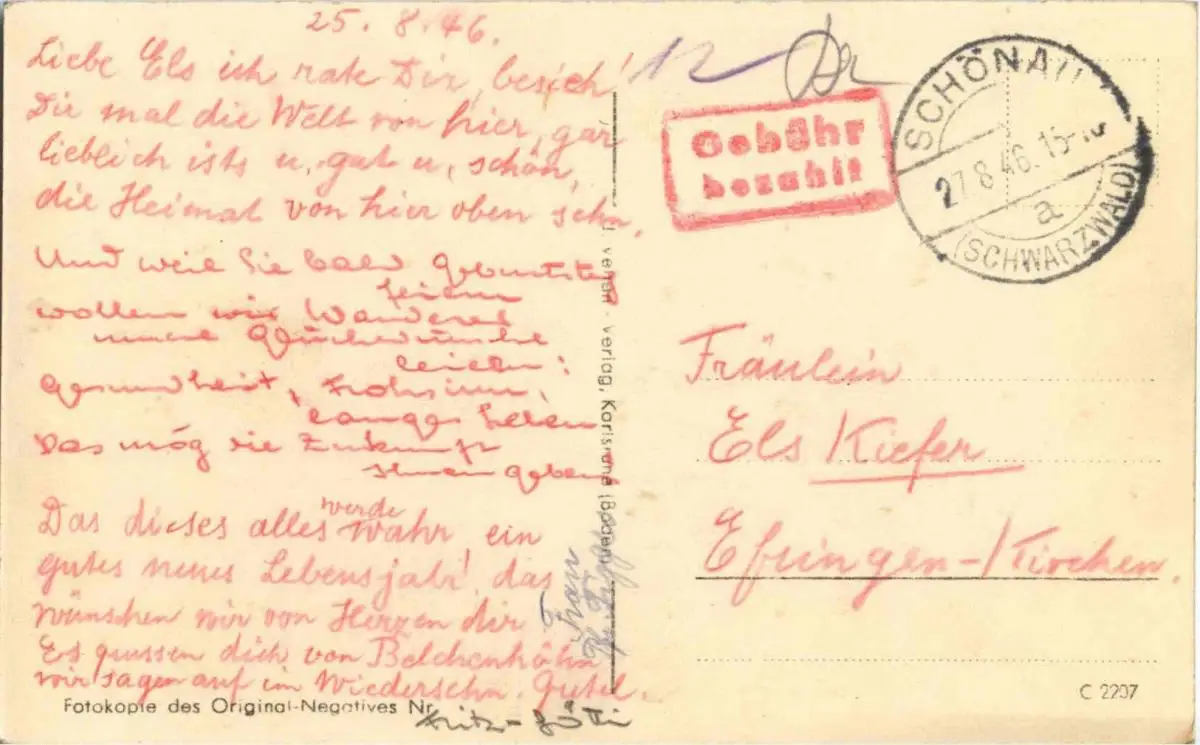 25. 8. 46.
Liebe Els ich rate Dir, besieh'
Dir mal die Welt von hier, gar
lieblich ists u. gut u. schön,
die Heimat von hier oben sehn.
Und weil Sie bald Geburtstag
feiern
wollen wir Wanderer
unsere Glückwünsche
Gesundheit, Frohsinn,
langes Leben
Das mög die Zukunft
Ihnen geben
Das dieses alles werde wahr, ein
gutes neues Lebensjahr! das
wünschen wir von Herzen dir
Es grüssen dich von Belchenhöhn
wir sagen auf ein Wiedersehn. Gustel.
Fotokopie des Original-Negatives Nr.
Fritz
Frau
verlag, Karlsruhe (Baden)
12
Gebühr
bezahlt
SCHÖNAU
27.8.46.15-
a
(SCHWARZWALD)
Fräulein
Els Kiefer
Efringen-/Kirchen.
C 2207